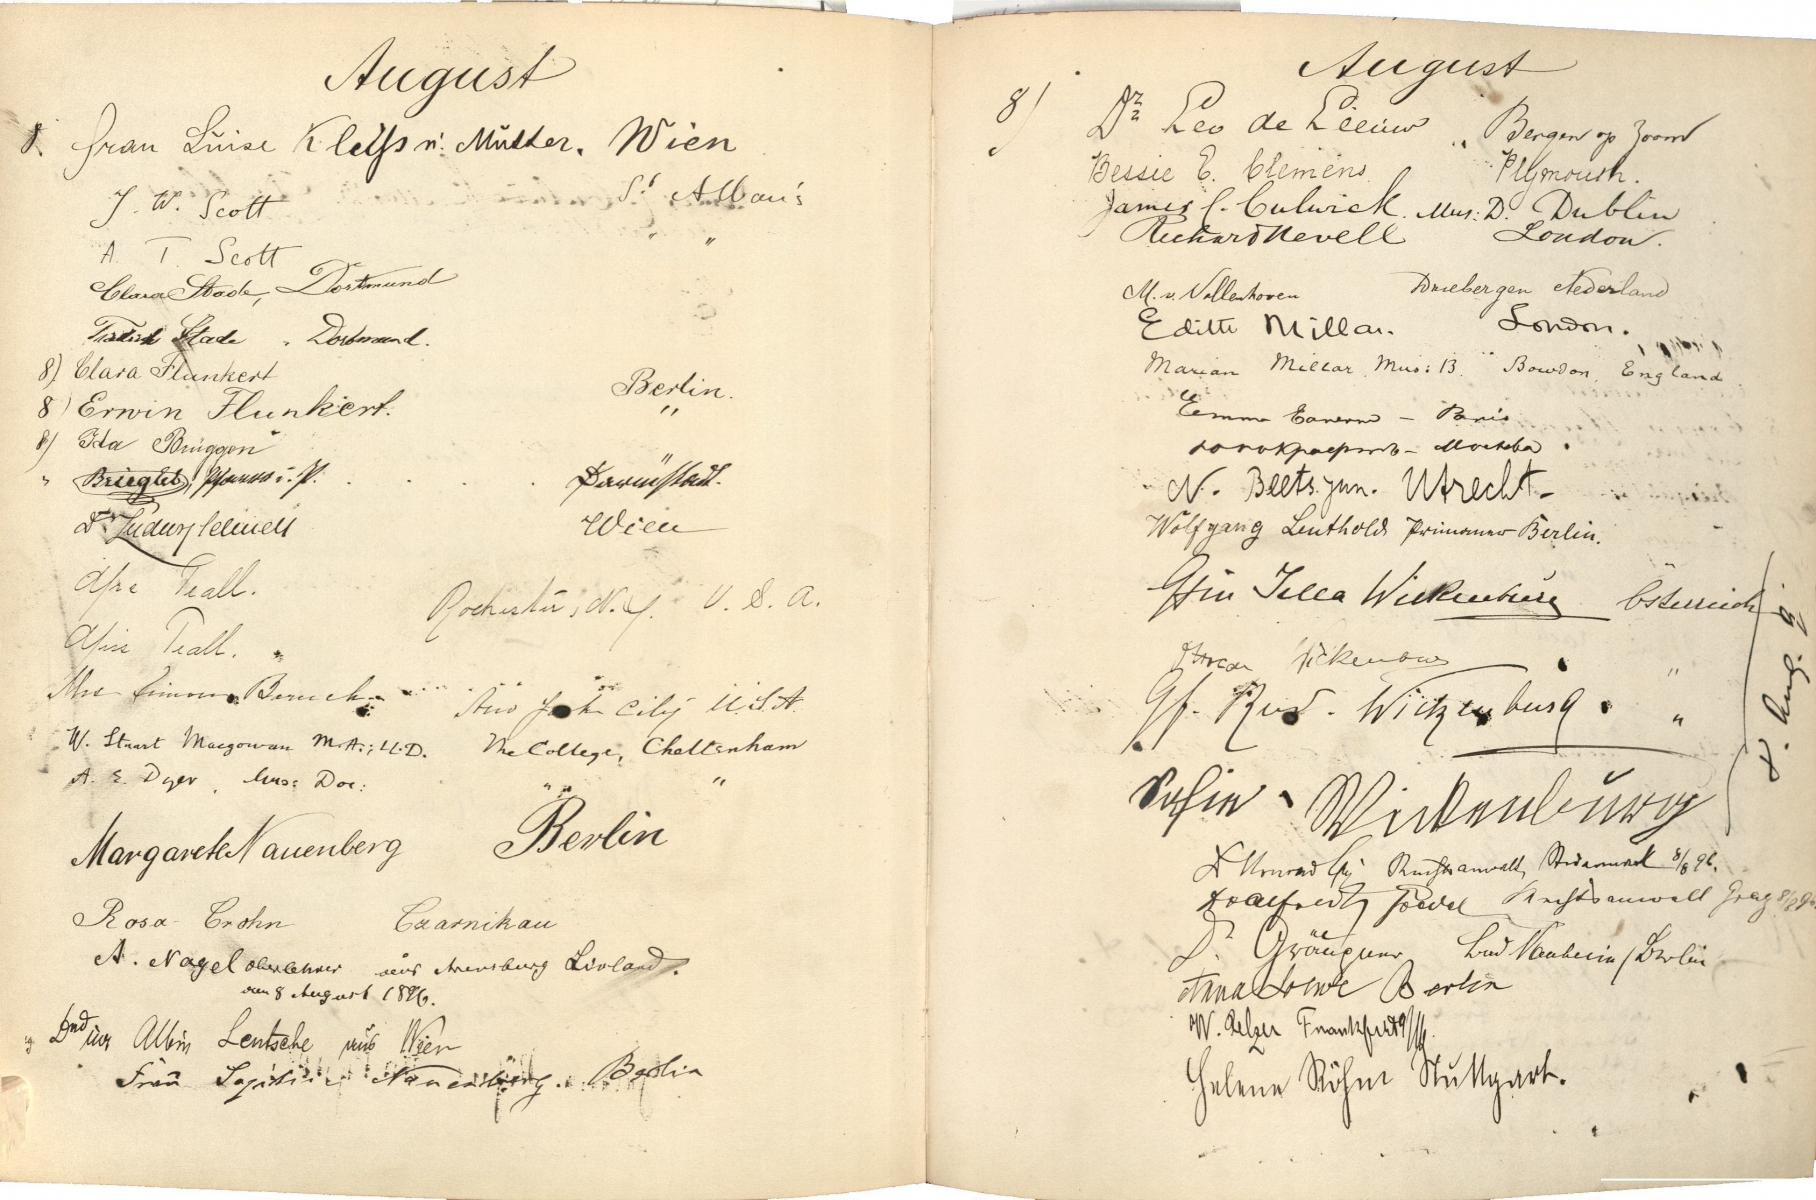 August
8. Frau Luise Kleyss u. Mutter. Wien
J. W. Scott St Alban's
A. T. Scott " "
Clara Stade, Dortmund
Stade. Dortmund.
8) Clara Flunkert Berlin.
8) Erwin Flunkert. "
8) Ida Brüggen
" Briegleb, Pfarrer i. P. Darmstadt.
Dr Ludwig Wien
Teall. Rochester, N. Y. U. S. A.
Teall. "
Mrs Simon Baruch New York City U.S.A.
W. Stuart Macgowan M.A.; LL.D. The College, Cheltenham
A. E. Dyer, Mus: Doc: " "
Margarete Nauenberg Berlin
Rosa Crohn Czarnikau
A. Nagel Oberlehrer aus Arensburg Livland.
den 8 August 1896.
Albin Lentsche aus Wien
Frau Nauenberg. Berlin
August
8) Dr Leo de Leeuw „ Bergen op Zoom
Bessie E. Clemens Plymouth.
James C. Culwick. Mus: D. Dublin
Richard Nevell London.
M. v. Vollenhoven Driebergen Nederland
Edith Millar. London.
Marian Millar Mus: B. " Bowdon, England
Emma – Paris
– Москва
N. Beets. jun. Utrecht–
Wolfgang Leuthold Primaner Berlin.
Gfin Wickenburg Österreich
Wickenburg "
Gf. Rud. Wickenburg "
Wickenburg
8. Aug. 96
Dr Rechtsanwalt, 8/8 96.
Rechtsanwalt 8/8 96
Dr Gräupner Bad Nauheim / Berlin
Anna Loewe Berlin
W. Frankfurt
Helene Röhm Stuttgart.